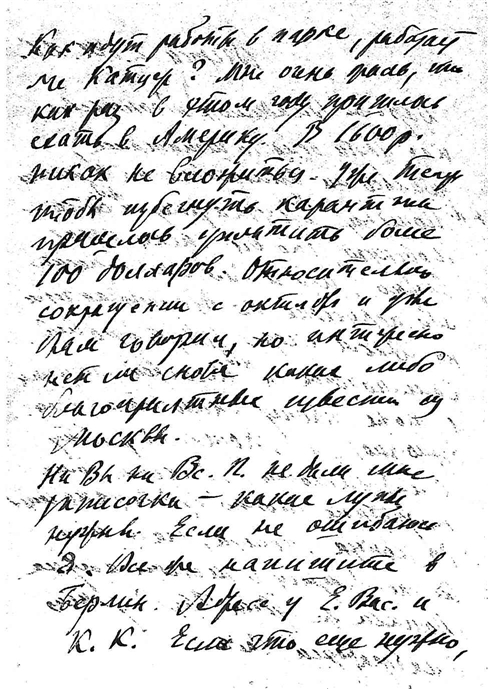 Как идут работы в парке, работает
ли Катуар? Мне очень жаль, что
как раз в этом году пришлось
ехать в Америку. В 1600 р.
никак не вложиться. Уже теперь
чтобы избегнуть карантина
пришлось уплатить более
100 долларов. Относительно
сокращения с октября я уже
Вам говорил, но интересно
нет ли снова каких либо
благоприятных известий из
Москвы.
Ни Вы ни Вс. П. не дали мне
записочки – какие лупы
нужны. Если не ошибаюсь
Все же напишите в
Берлин. Адрес у Е. Вас. и
К. К. Если это еще нужно,